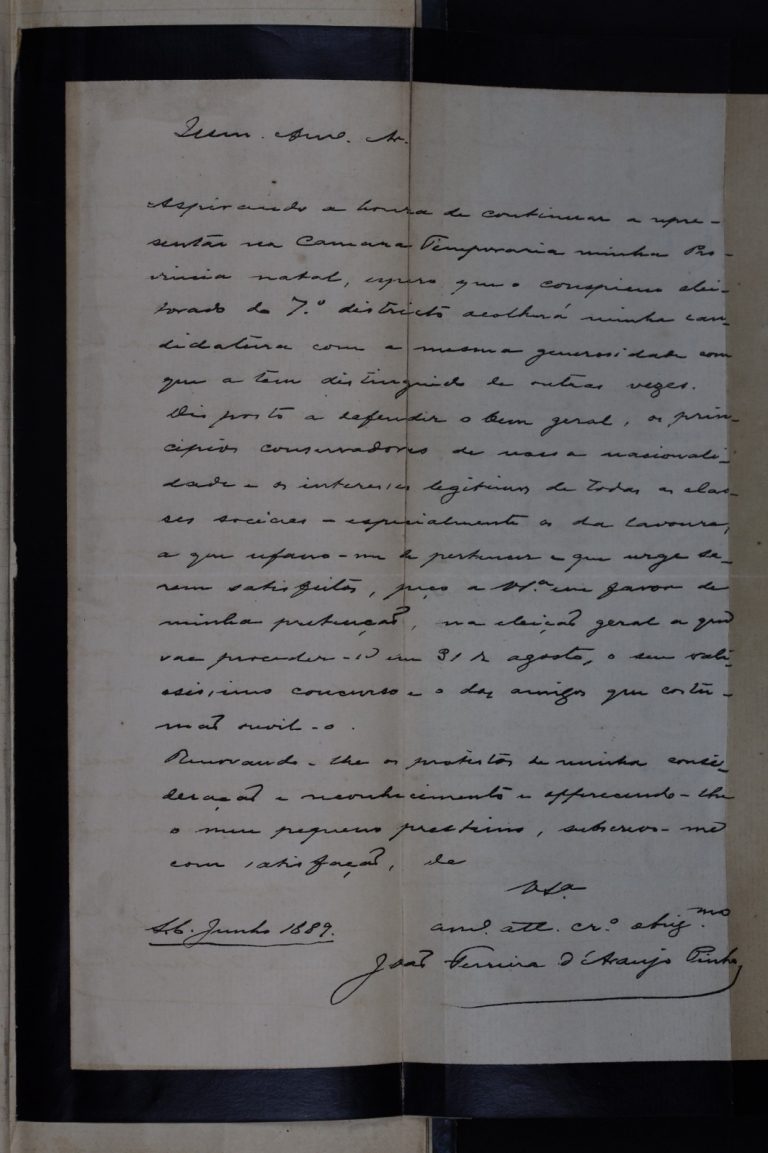 Illm. Am.º Sr.
Aspirando a honra de continuar a repre-
sentar na Camara Temporaria minha Pro-
vincia natal, espero que o conspicuo elei-
torado do 7.º districto acolherá minha can-
didatura com a mesma generosidade com
que a tem distinguido de outras vezes.
Disposto a defender o bem geral, os prin-
cipios conservadores de nossa nacionali-
dade e os interesses legitimos de todas as clas-
ses sociaes – especialmente os da lavoura,
a que ufano-me de pertencer e que urge se-
rem satisfeitos, peço a VS.ª em favor de
minha pretenção, na eleição geral a que
vae proceder-se em 31 de agosto, o seu vali-
osissimo concurso e o dos amigos que costu-
mão ouvil-o.
Renovando-lhe os protestos de minha consi-
deração e reconhecimento e offerecendo-lhe
o meu pequeno prestimo, subscrevo-me
com satisfação, de
VS.ª
am.º att. cr.º obrig.mo
Junho 1889.
João Ferreira d'Araujo Pinho